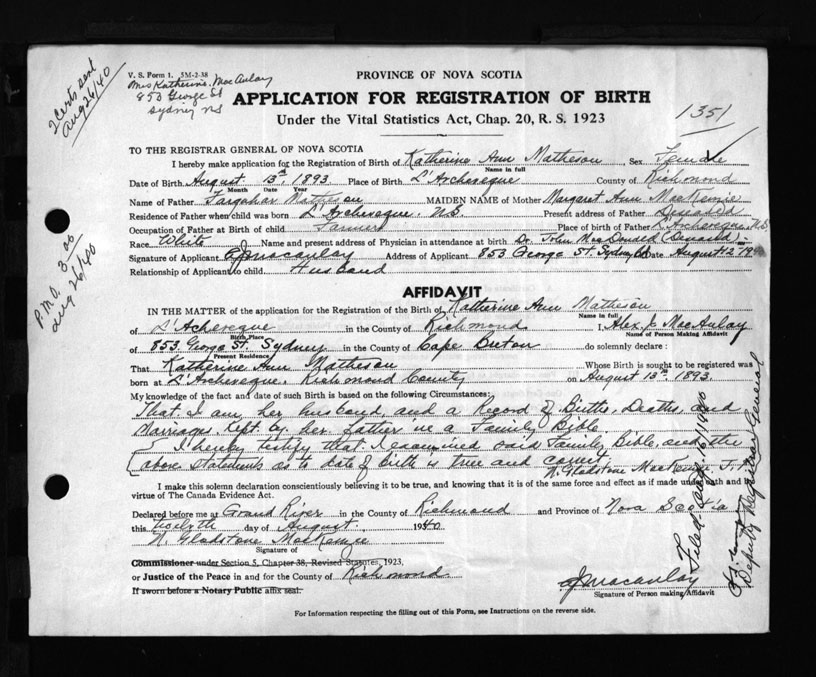 V. S. Form 1. 5M-2-38
Mrs Katherine MacAulay
853 George St
Sydney NS
2 Certs sent
Aug 26/40
P.M.O. 3.00
Aug 26/40
PROVINCE OF NOVA SCOTIA
APPLICATION FOR REGISTRATION OF BIRTH
Under the Vital Statistics Act, Chap. 20, R. S. 1923
1351
TO THE REGISTRAR GENERAL OF NOVA SCOTIA
I hereby make application for the Registration of Birth of Katherine Ann Matheson Sex Female
Name in full
Date of Birth August 13th 1893 Place of Birth L'Archeveque County of Richmond
Month Date Year
Name of Father Farquhar Matheson MAIDEN NAME of Mother Margaret Ann MacKenzie
Residence of Father when child was born L'Archeveque. N.S. Present address of Father Deceased
Occupation of Father at Birth of child Farmer Place of birth of Father L'Archeveque N.S.
Race White Name and present address of Physician in attendance at birth Dr. John MacDonald (Deceased)
Signature of Applicant AJMacaulay Address of Applicant 853 George St. Sydney Date August 12 19
Relationship of Applicant to child Husband
AFFIDAVIT
IN THE MATTER of the application for the Registration of the Birth of Katherine Ann Matheson
Name in full
of L'Acheveque in the County of Richmond I, Alex J. MacAulay
Birth Place Name of Person Making Affidavit
of 853 George St. Sydney in the County of Cape Breton do solemnly declare:
Present Residence
That Katherine Ann Matheson Whose Birth is sought to be registered was
born at L'Archeveque, Richmond County on August 13th, 1893
My knowledge of the fact and date of such Birth is based on the following Circumstances:
That I am her husband, and a Record of Births, Deaths, and
Marriages kept by her father in a Family Bible.
I hereby testify that I examined said Family Bible, and the
above statements as to date of birth is true and correct
N. Gladstone MacKenzie J. P.
I make this solemn declaration conscientiously believing it to be true, and knowing that it is of the same force and effect as if made under oath and by
virtue of The Canada Evidence Act.
Declared before me at Grand River in the County of Richmond and Province of Nova Scotia
this twelfth day of August 1940
N. Gladstone MacKenzie
Signature of
Commissioner under Section 5, Chapter 38, Revised Statutes, 1923,
or Justice of the Peace in and for the County of Richmond
If sworn before a Notary Public affix seal.
AJMacaulay
Signature of Person making Affidavit
Filed Aug. 16/1940
Deputy Registrar General
For Information respecting the filling out of this Form, see Instructions on the reverse side.